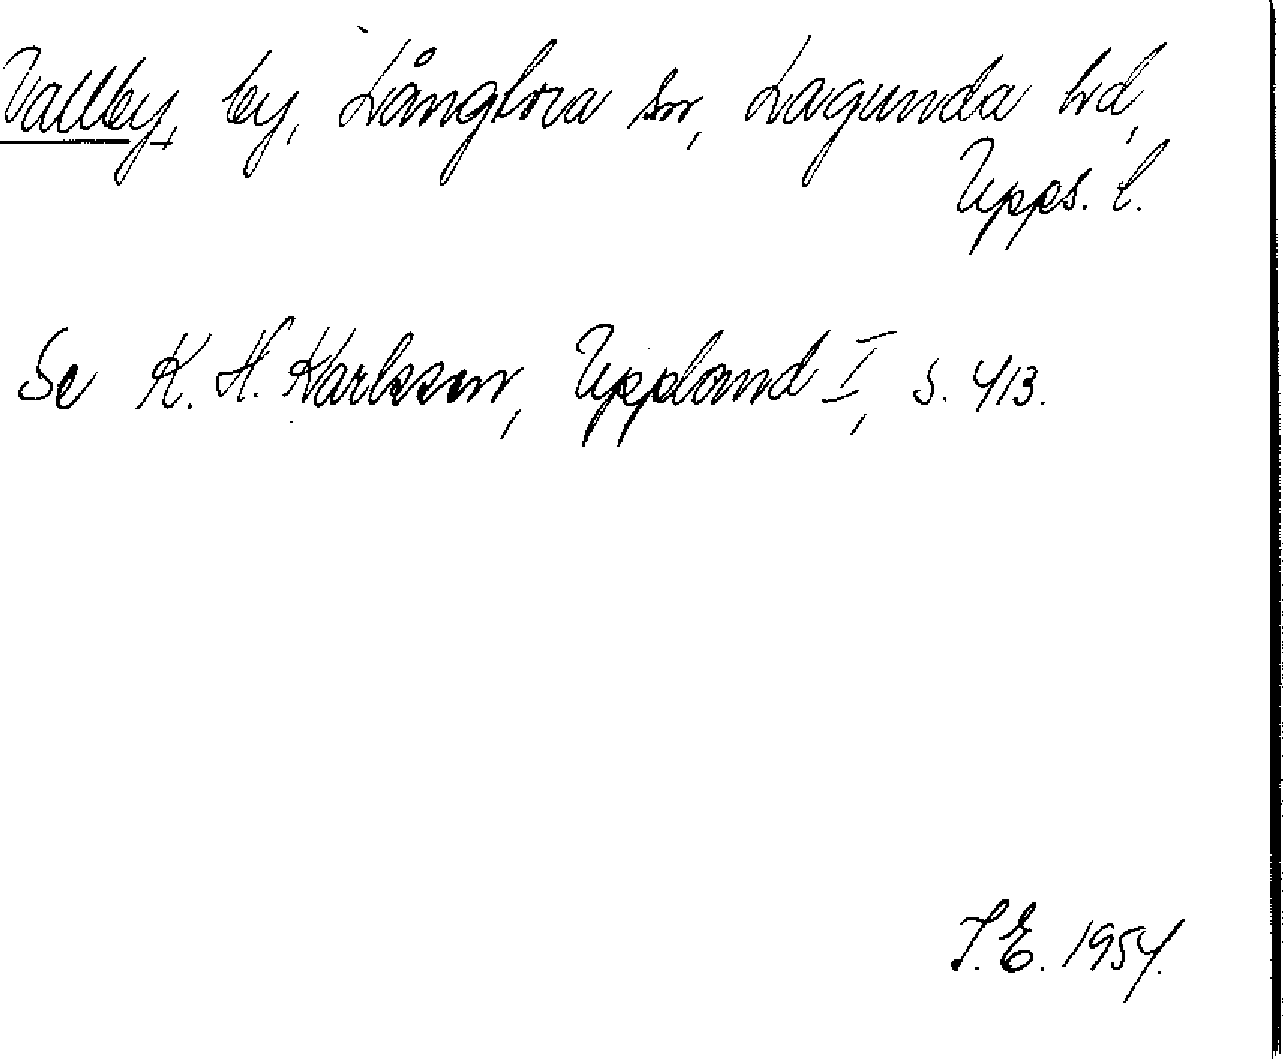 Vallby, by, Långtora sn, Lagunda hd,
Upps. l.
Se K. H. Karlsson, Uppland I, s. 413.
J. E. 1954.